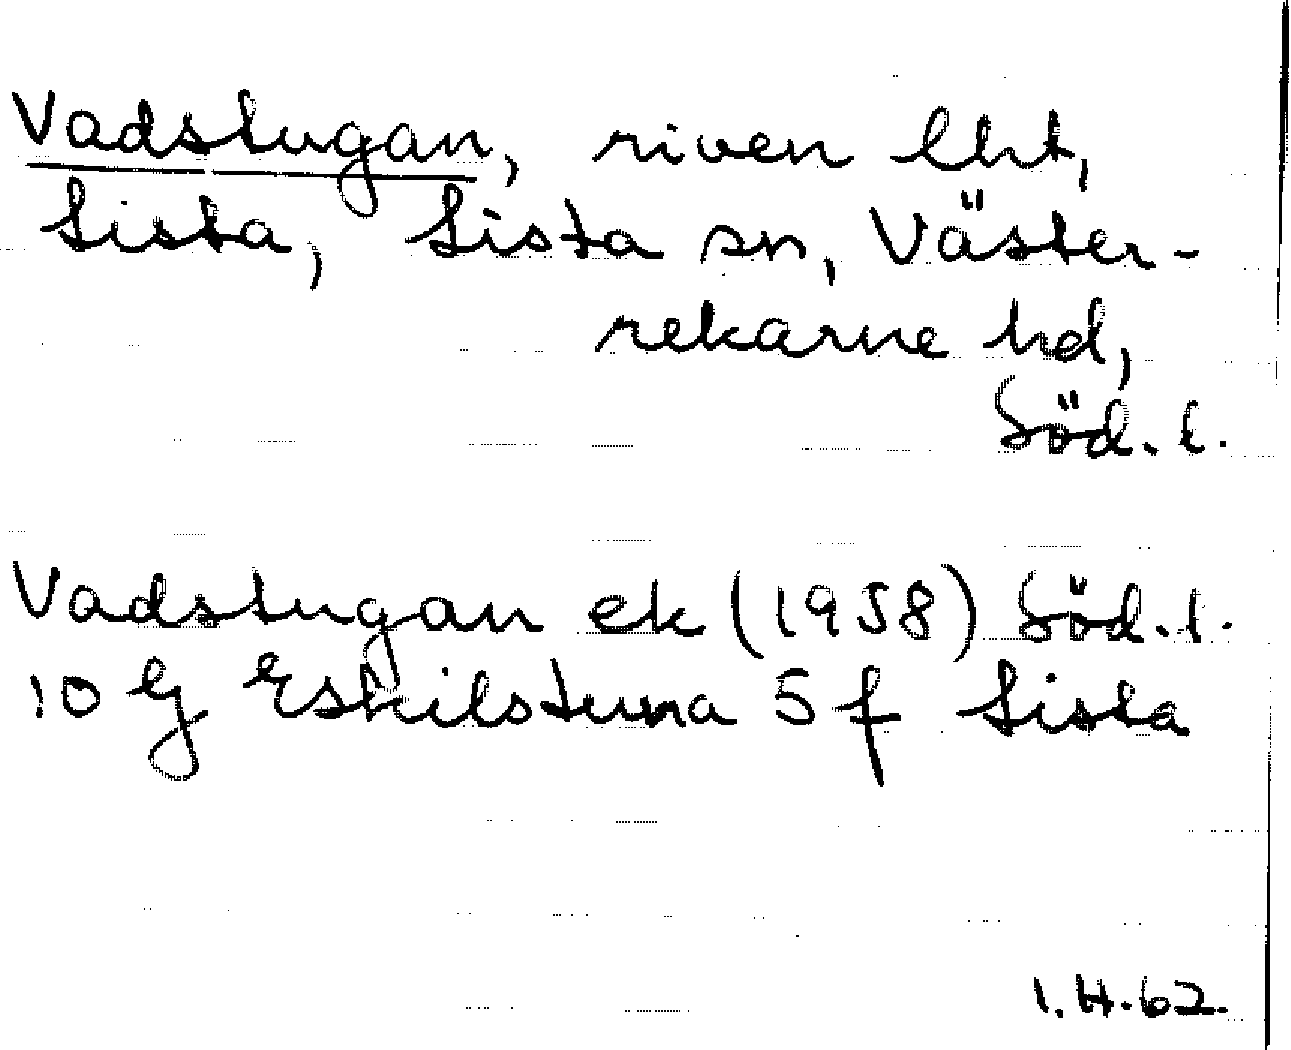 Vadstugan, riven lht,
Lista, Lista sn, Väster-
rekarne hd,
Söd. l.
Vadstugan ek (1958) Söd. l.
10 G Eskilstuna 5 f Lista
I. H. 62.